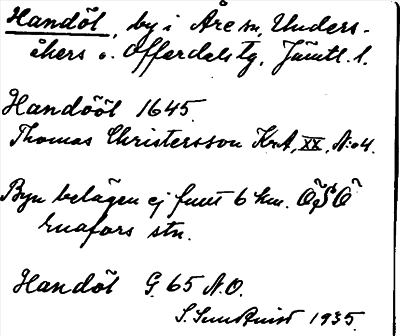 Handöl, by i Åre sn, Unders-
åkers o. Offerdals tg, Jämtl. l.
Handööl 1645.
Thomas Christersson KrA, XX, N:o 4.
Byn belägen ej fullt 6 km. ÖSÖ
Enafors stn.
Handöl G. 65 N.O.
S. Sundkvist 1935.